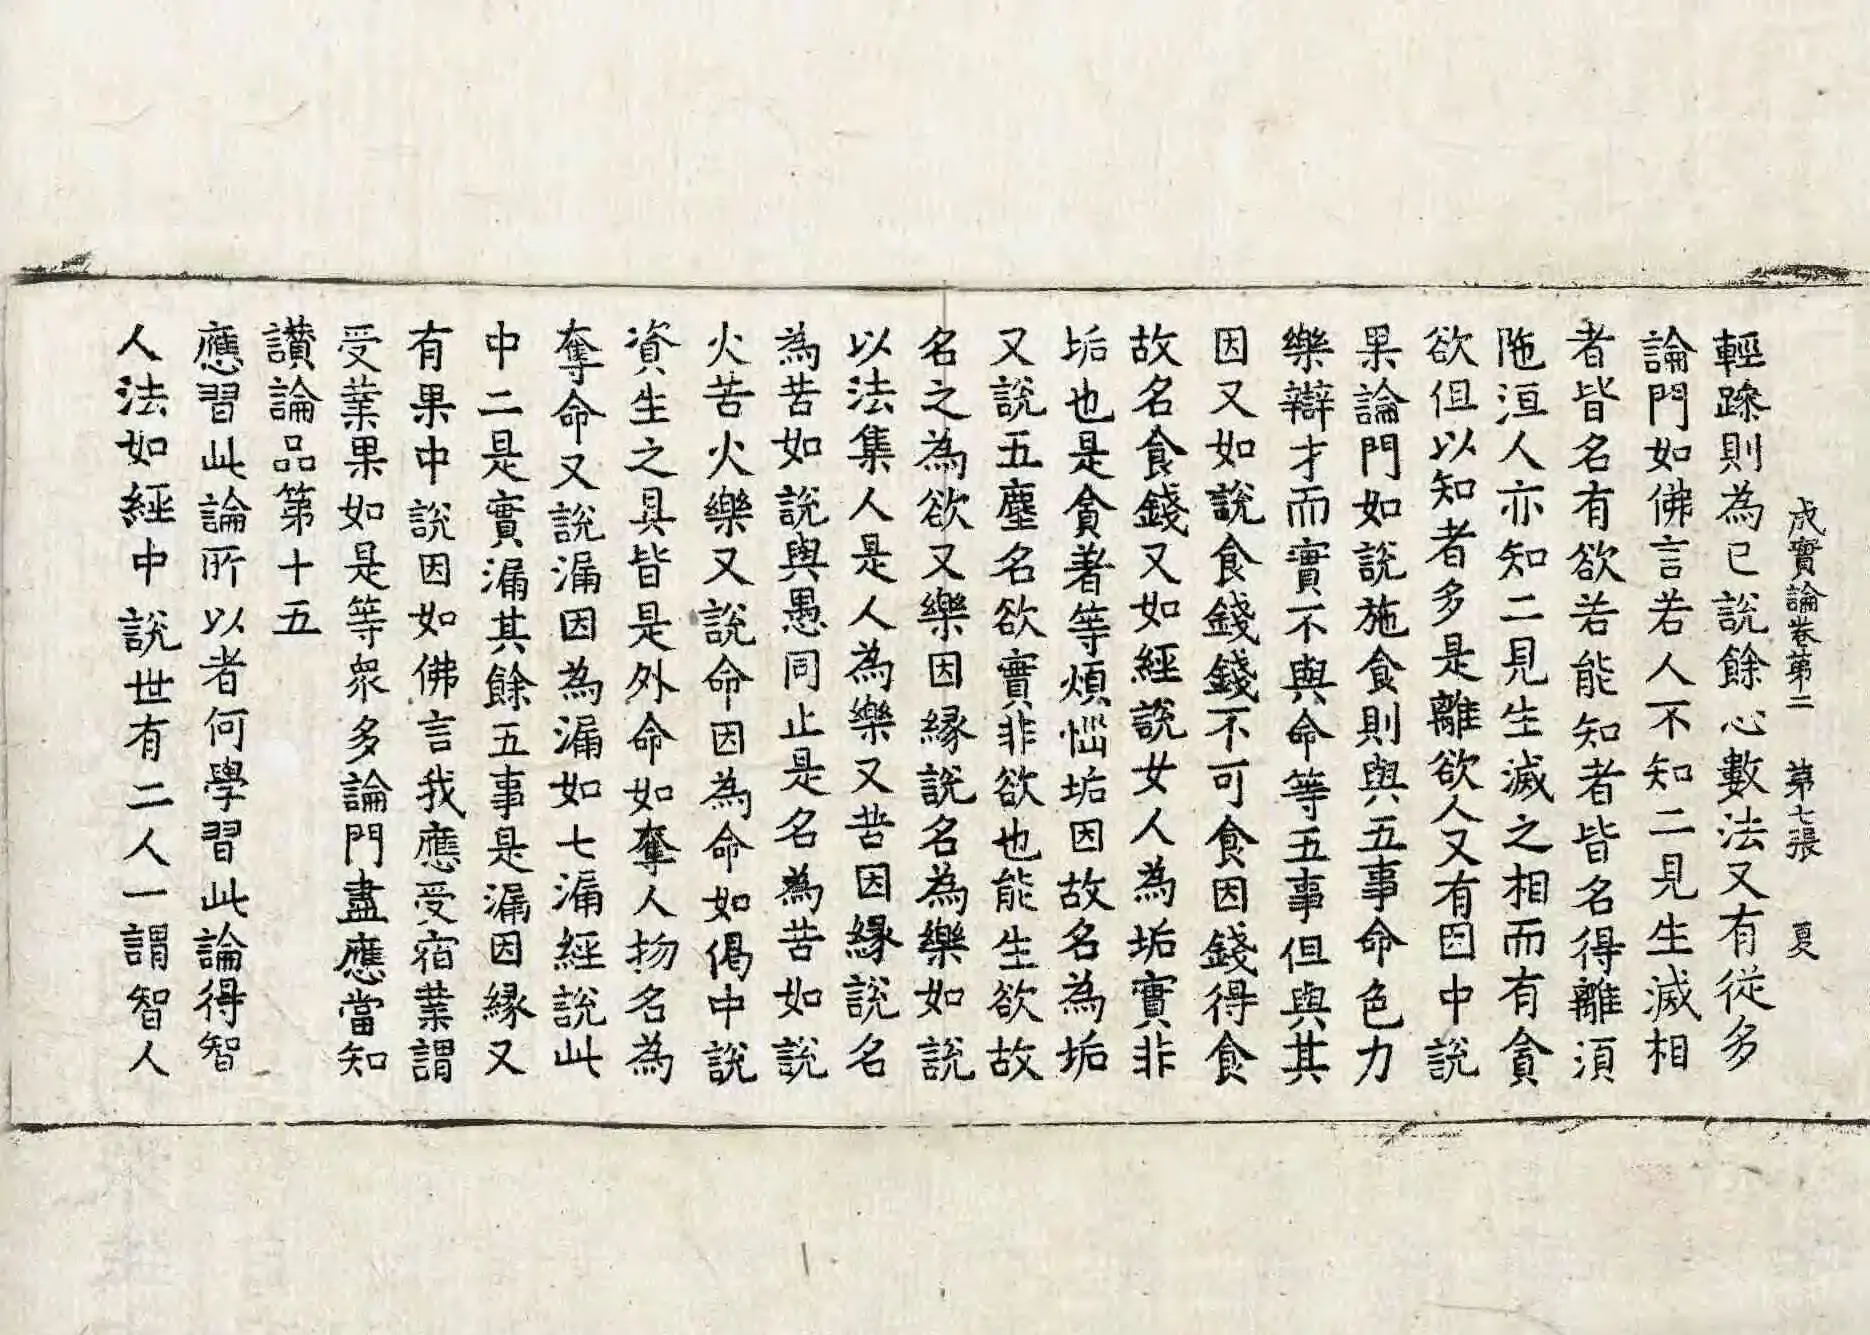 成實論卷第二 第七張 夏
輕躁則為已說餘心數法又有從多
論門如佛言若人不知二見生滅相
者皆名有欲若能知者皆名得離須
陁洹人亦知二見生滅之相而有貪
欲但以知者多是離欲人又有因中說
果論門如說施食則與五事命色力
樂辯才而實不與命等五事但與其
因又如說食錢錢不可食因錢得食
故名食錢又如經說女人為垢實非
垢也是貪著等煩惱垢因故名為垢
又說五塵名欲實非欲也能生欲故
名之為欲又樂因緣說名為樂如說
以法集人是人為樂又苦因緣說名
為苦如說與愚同止是名為苦如說
火苦火樂又說命因為命如偈中說
資生之具皆是外命如奪人物名為
奪命又說漏因為漏如七漏經說此
中二是實漏其餘五事是漏因緣又
有果中說因如佛言我應受宿業謂
受業果如是等眾多論門盡應當知
讃論品第十五
應習此論所以者何學習此論得智
人法如經中說世有二人一謂智人